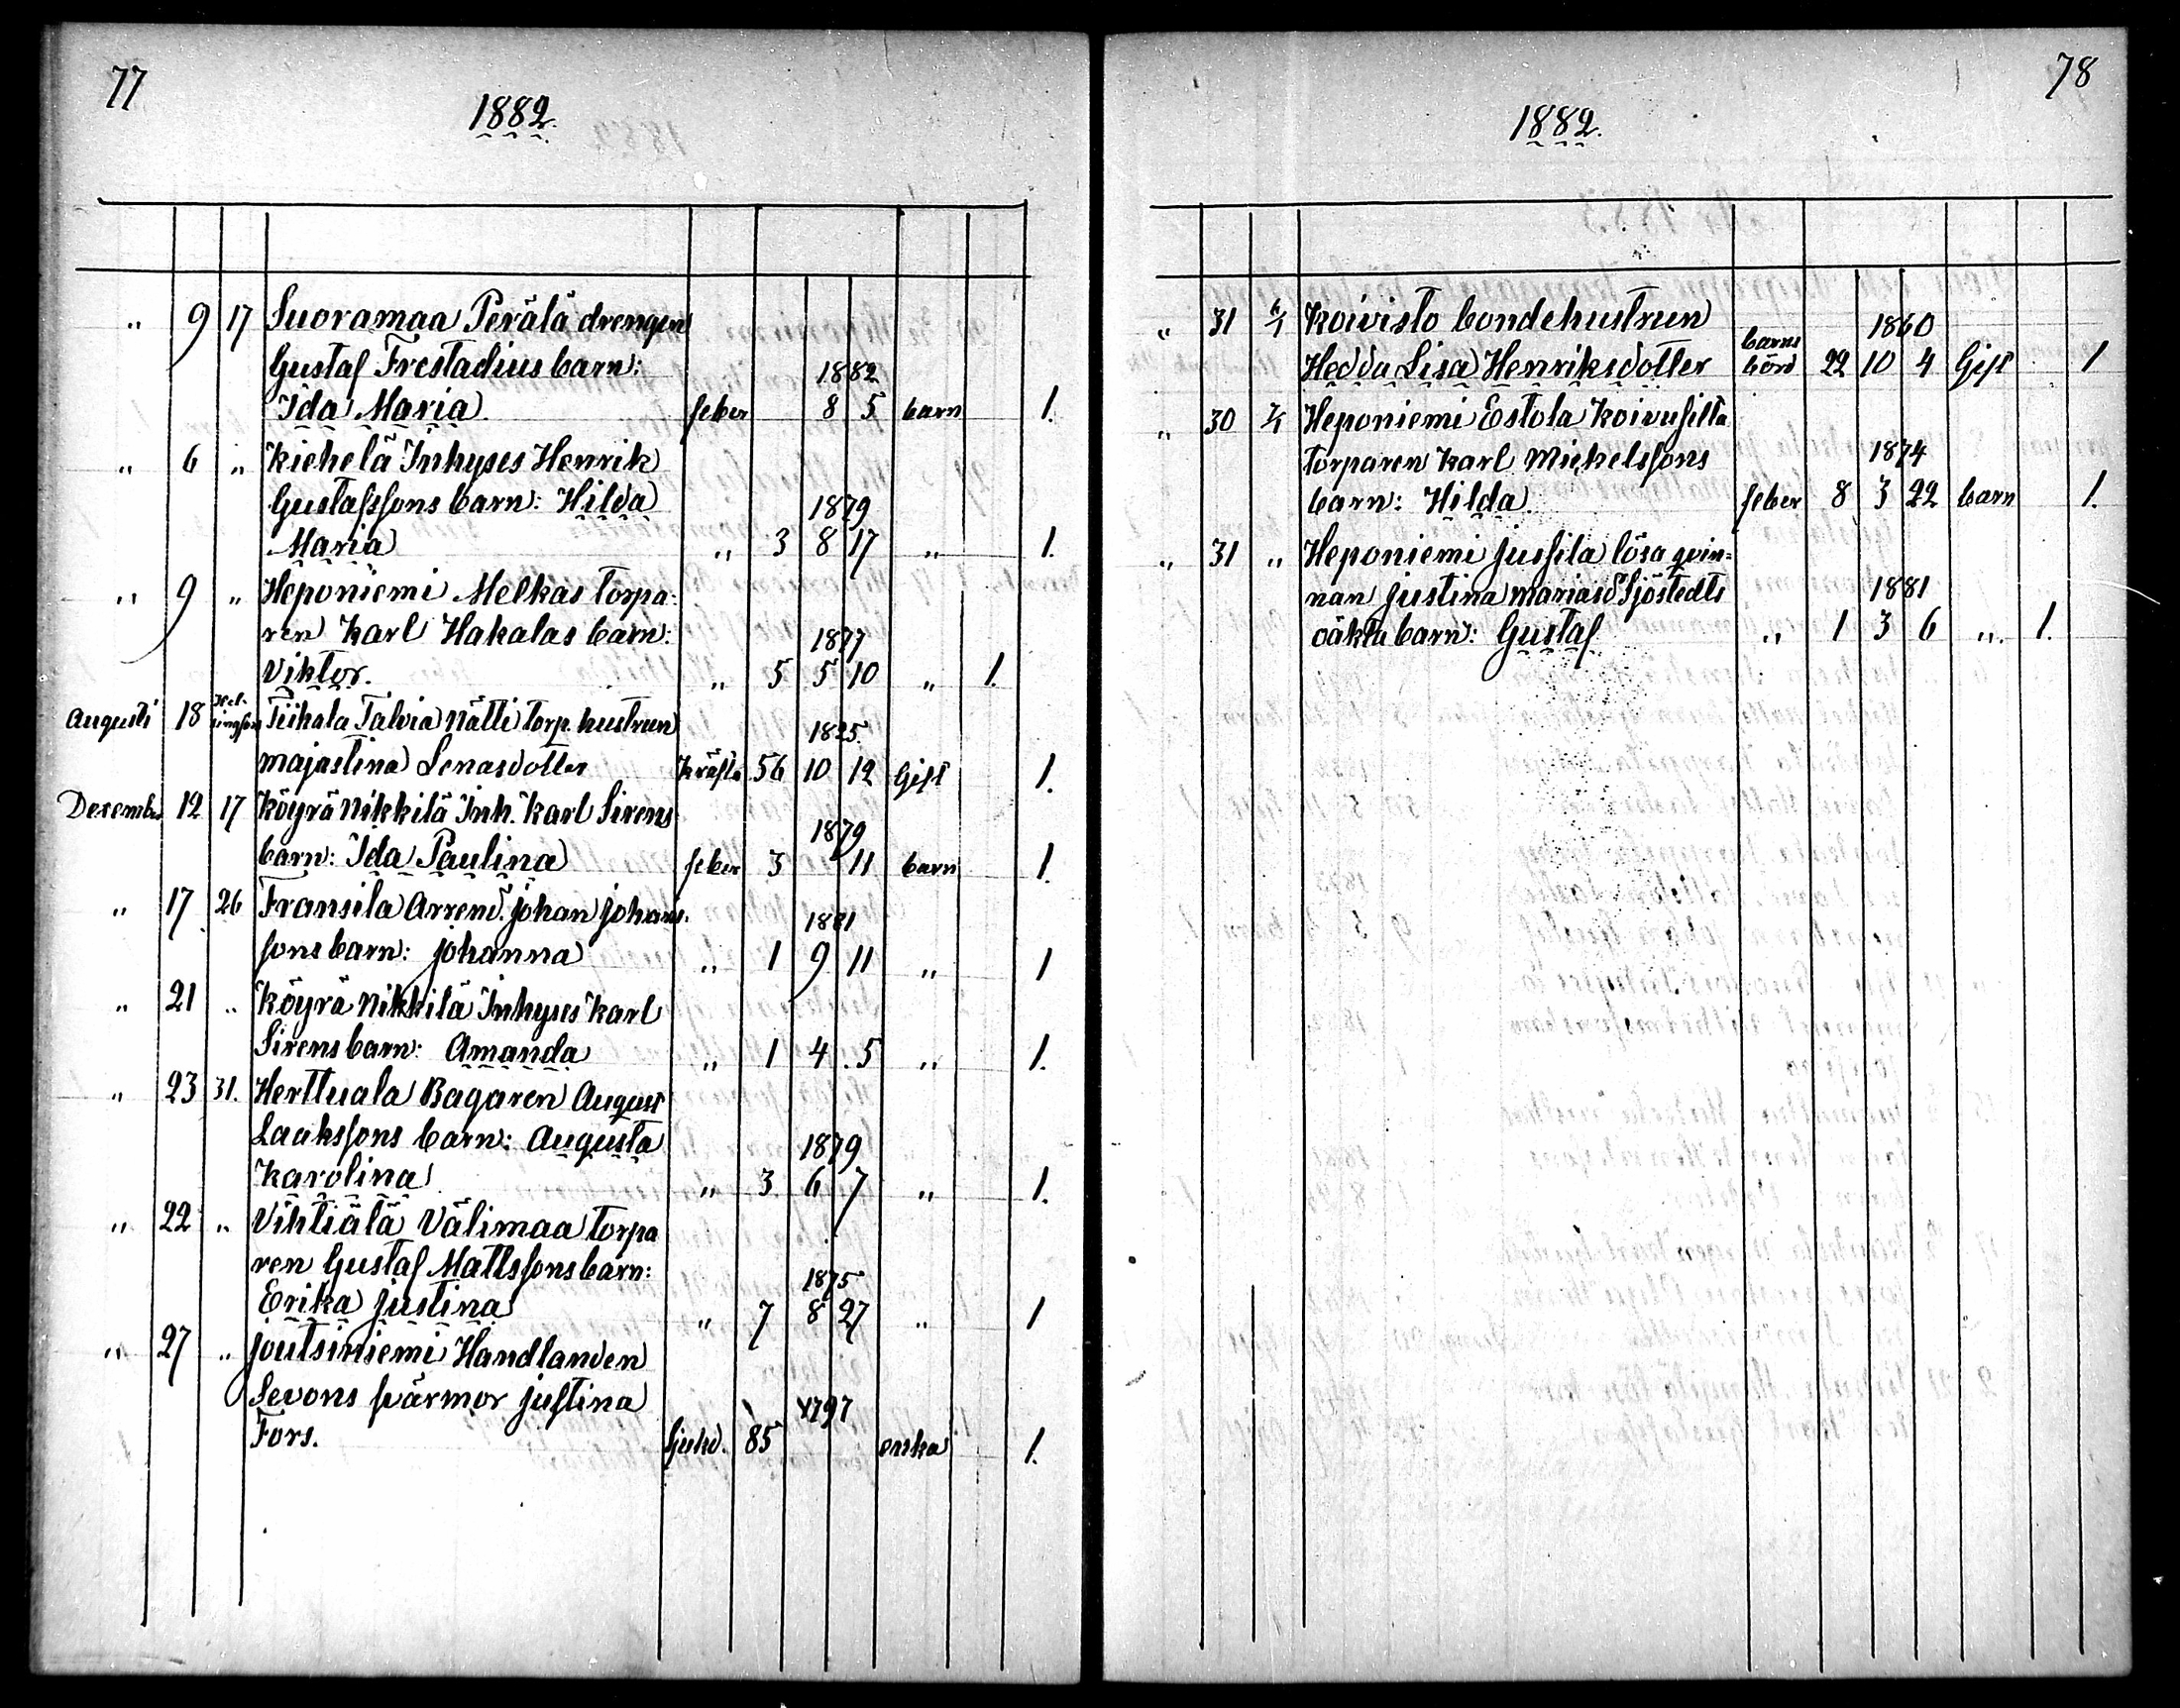 77
1882.
" 9 17 Suoramaa Perälä drengen
Gustaf Frestadius barn: 1882
Ida Maria. feber 8 5 barn 1.
" 6 " Kiehelä Inhyses Henrik
Gustafssons barn: Hilda 1879
Maria " 3 8 17 " 1.
" 9 " Heponiemi Melkas torpa-
ren Karl Hakalas barn: 1877
Viktor. " 5 5 10 " 1.
Augusti 18 Hel-
singfors Tiihala Talvia Nätti torp. hustrun 1825.
Majastina Lenasdotter Kräfta 56 10 12 Gift 1.
December 12 17 Köyrä Nikkilä Inh. Karl Sirens 1879
barn: Ida Paulina feber 3 11 barn 1.
" 17 26 Fransila Arrend. Johan Johans- 1881
sons barn: Johanna " 1 9 11 " 1
" 21 " Köyrä Nikkilä Inhyses Karl
Sirens barn: Amanda " 1 4 5 " 1.
" 23 31. Herttuala Bagaren August
Laakssons barn: Augusta 1879
Karolina " 3 6 7 " 1.
" 22 " Vihtiälä Välimaa torpa
ren Gustaf Mattssons barn: 1875
Erika Justina " 7 8 27 " 1
" 27 " Joutsiniemi Handlanden
Sevons svärmor Justina 1797
Fors. sjukd. 85 enka 1.
78
1882.
" 31 6/1 Koivisto bondehustrun 1860
Hedda Lisa Henriksdotter barns
börd 22 10 4 Gift 1
" 30 7/1 Heponiemi Estola Koivusilta
torparen Karl Michelssons 1874
barn: Hilda. feber 8 3 22 barn 1.
" 31 " Heponiemi Jussila lösa qvin-
nan Justina Mariasd. Sjöstedts 1881
oäkta barn: Gustaf " 1 3 6 " 1.